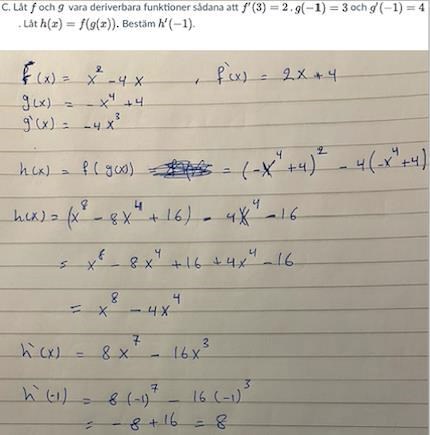 C. Låt f och g vara deriverbara funktioner sådana att f'(3) = 2, g(−1) = 3 och g'(−1) = 4
. Låt h(x) = f(g(x)). Bestäm h'(−1).
f(x) = x² - 4x , f'(x) = 2x + 4
g(x) = -x⁴ + 4
g'(x) = -4x³
h(x) = f(g(x)) = (-x⁴ + 4)² - 4(-x⁴ + 4)
h(x) = (x⁸ - 8x⁴ + 16) - 4x⁴ - 16
= x⁸ - 8x⁴ + 16 + 4x⁴ - 16
= x⁸ - 4x⁴
h'(x) = 8x⁷ - 16x³
h'(-1) = 8(-1)⁷ - 16(-1)³
= -8 + 16 = 8